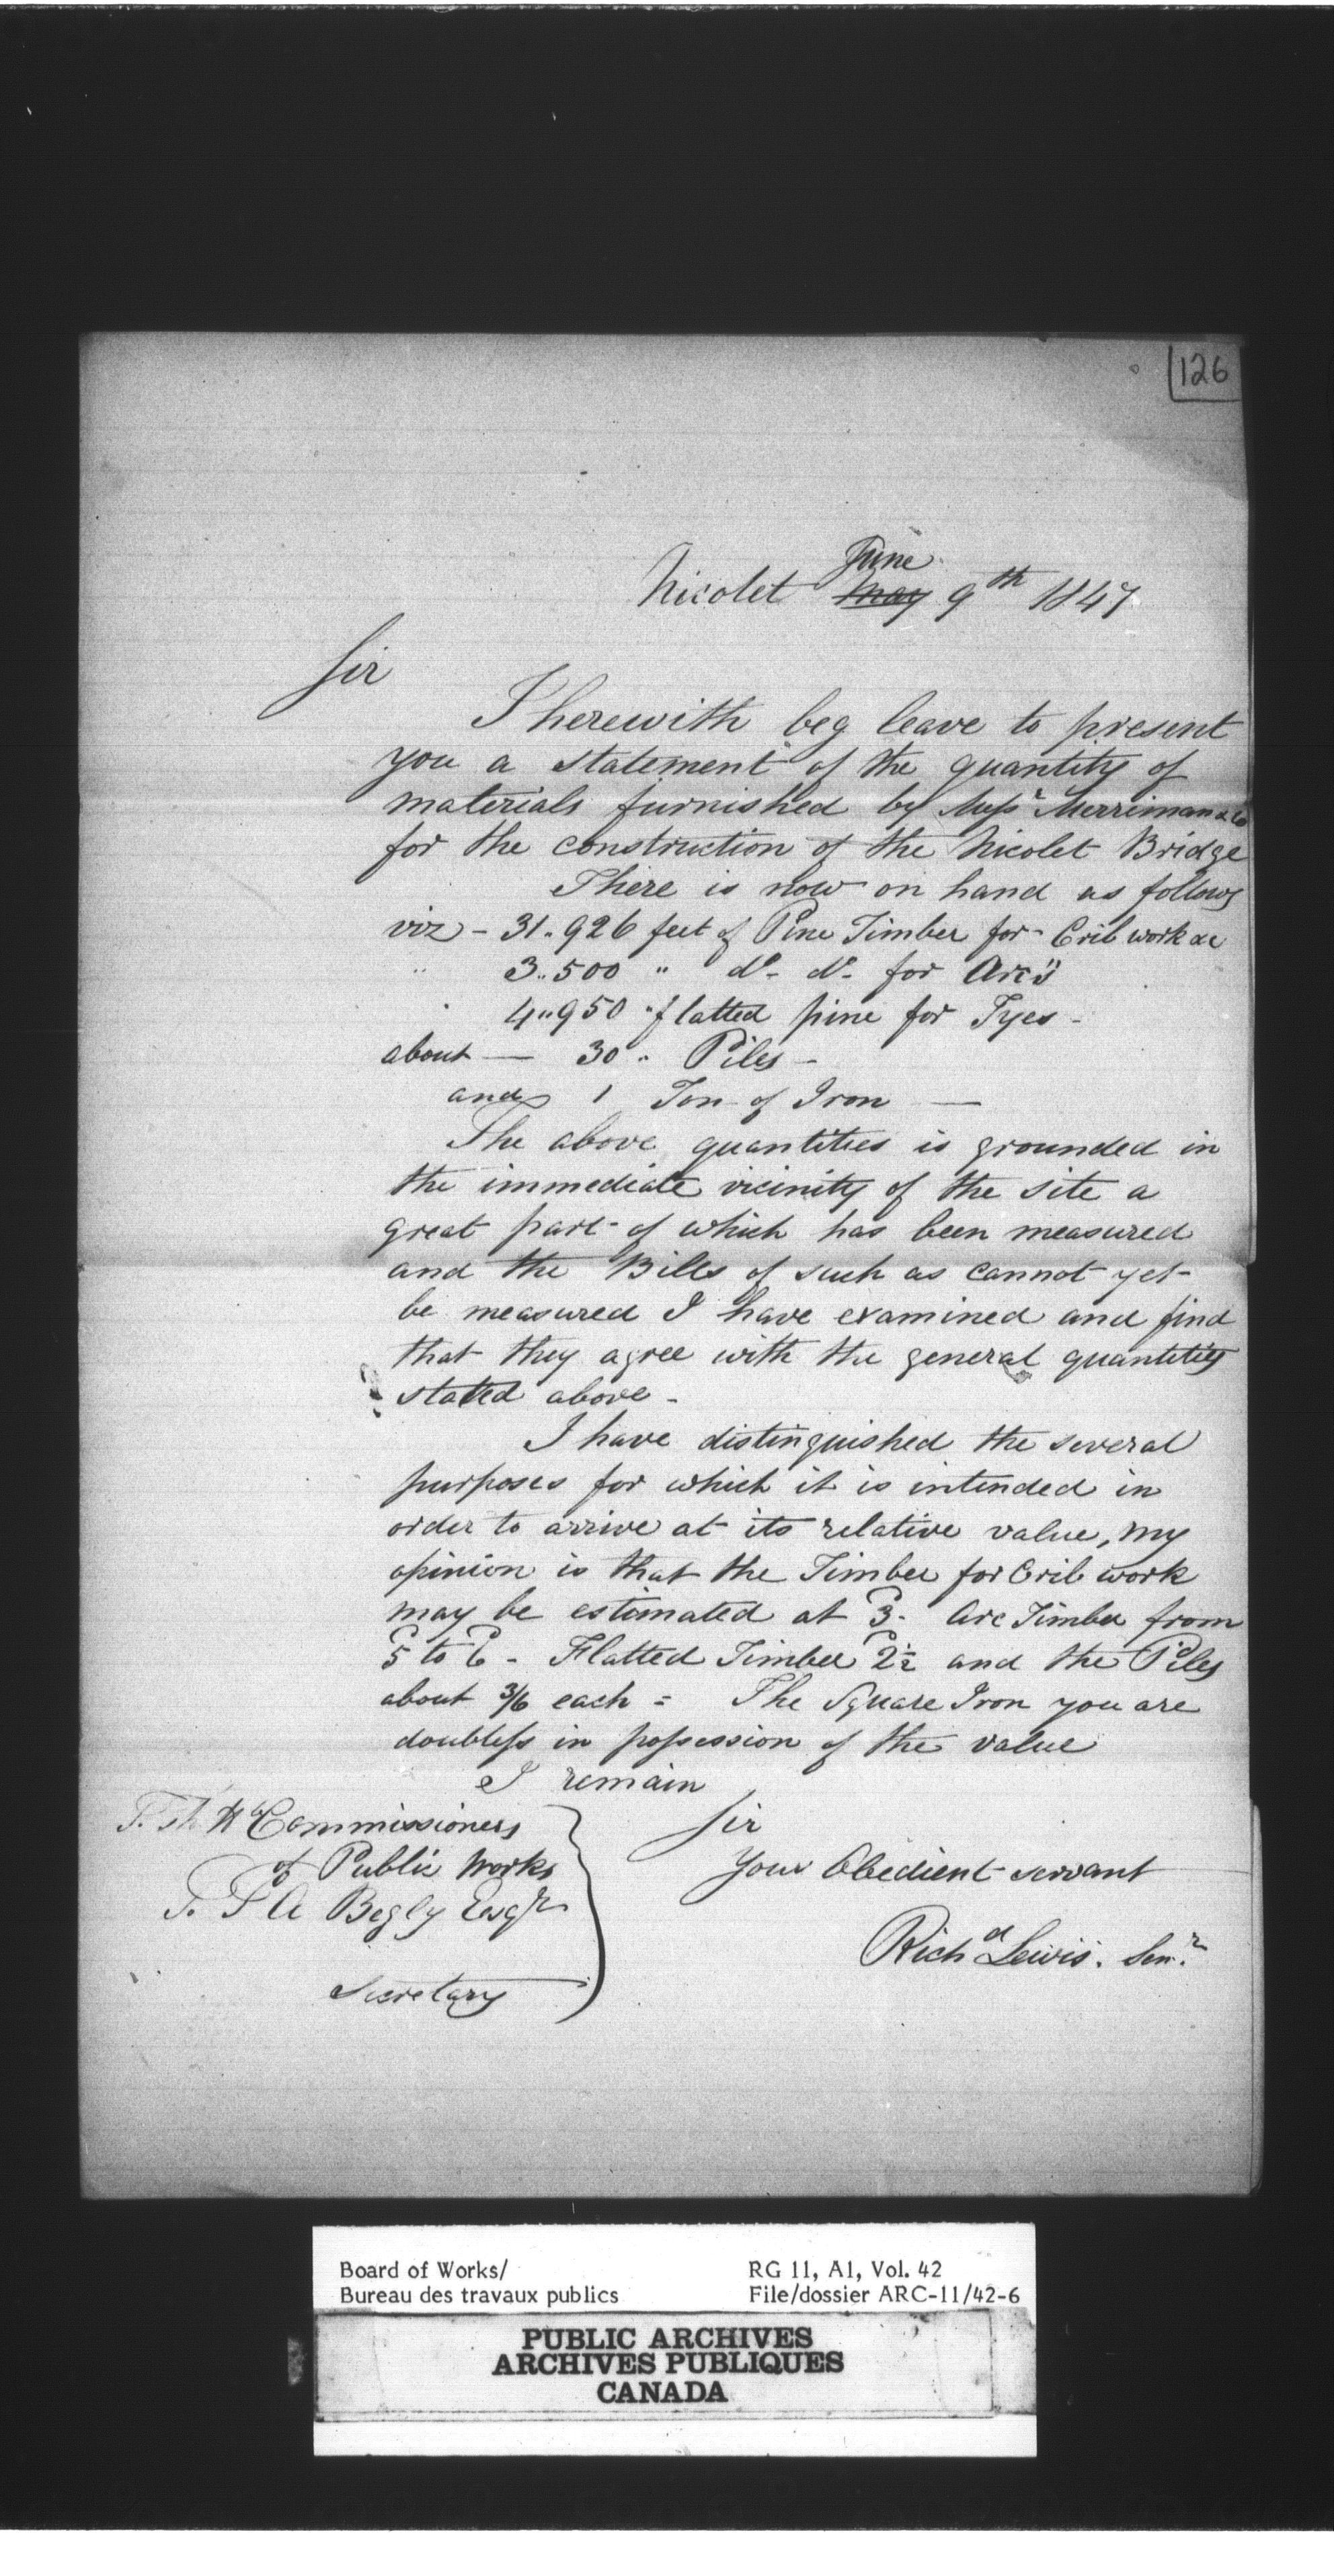 126
June
Nicolet May 9th 1847
Sir
I herewith beg leave to present
you a statement of the quantity of
materials furnished by Messr Merriman & Co
for the construction of the Nicolet Bridge
There is now on hand as follows
viz - 31.926 feet of Pine Timber for Crib work &c
" 3..500 " do. do. for Arc's
4..950 " flatted pine for Tyes -
about — 30 " Piles -
and 1 Ton of Iron —
The above quantities is grounded in
the immediate vicinity of the site a
great part of which has been measured
and the Bills of such as cannot yet
be measured I have examined and find
that they agree with the general quantities
stated above -
I have distinguished the several
purposes for which it is intended in
order to arrive at its relative value, my
opinion is that the Timber for Crib work
may be estimated at 3. Arc Timber from
5 to 6 - Flatted Timber 2½ and the Piles
about 3/6 each = The Square Iron you are
doubtless in possession of the value
I remain
Sir
Your Obedient servant
Richd Lewis. Senr.
Commissioners
of Public Works
Begly Esqr
Secretary
Board of Works/
Bureau des travaux publics
RG 11, A1, Vol. 42
File/dossier ARC-11/42-6
PUBLIC ARCHIVES
ARCHIVES PUBLIQUES
CANADA